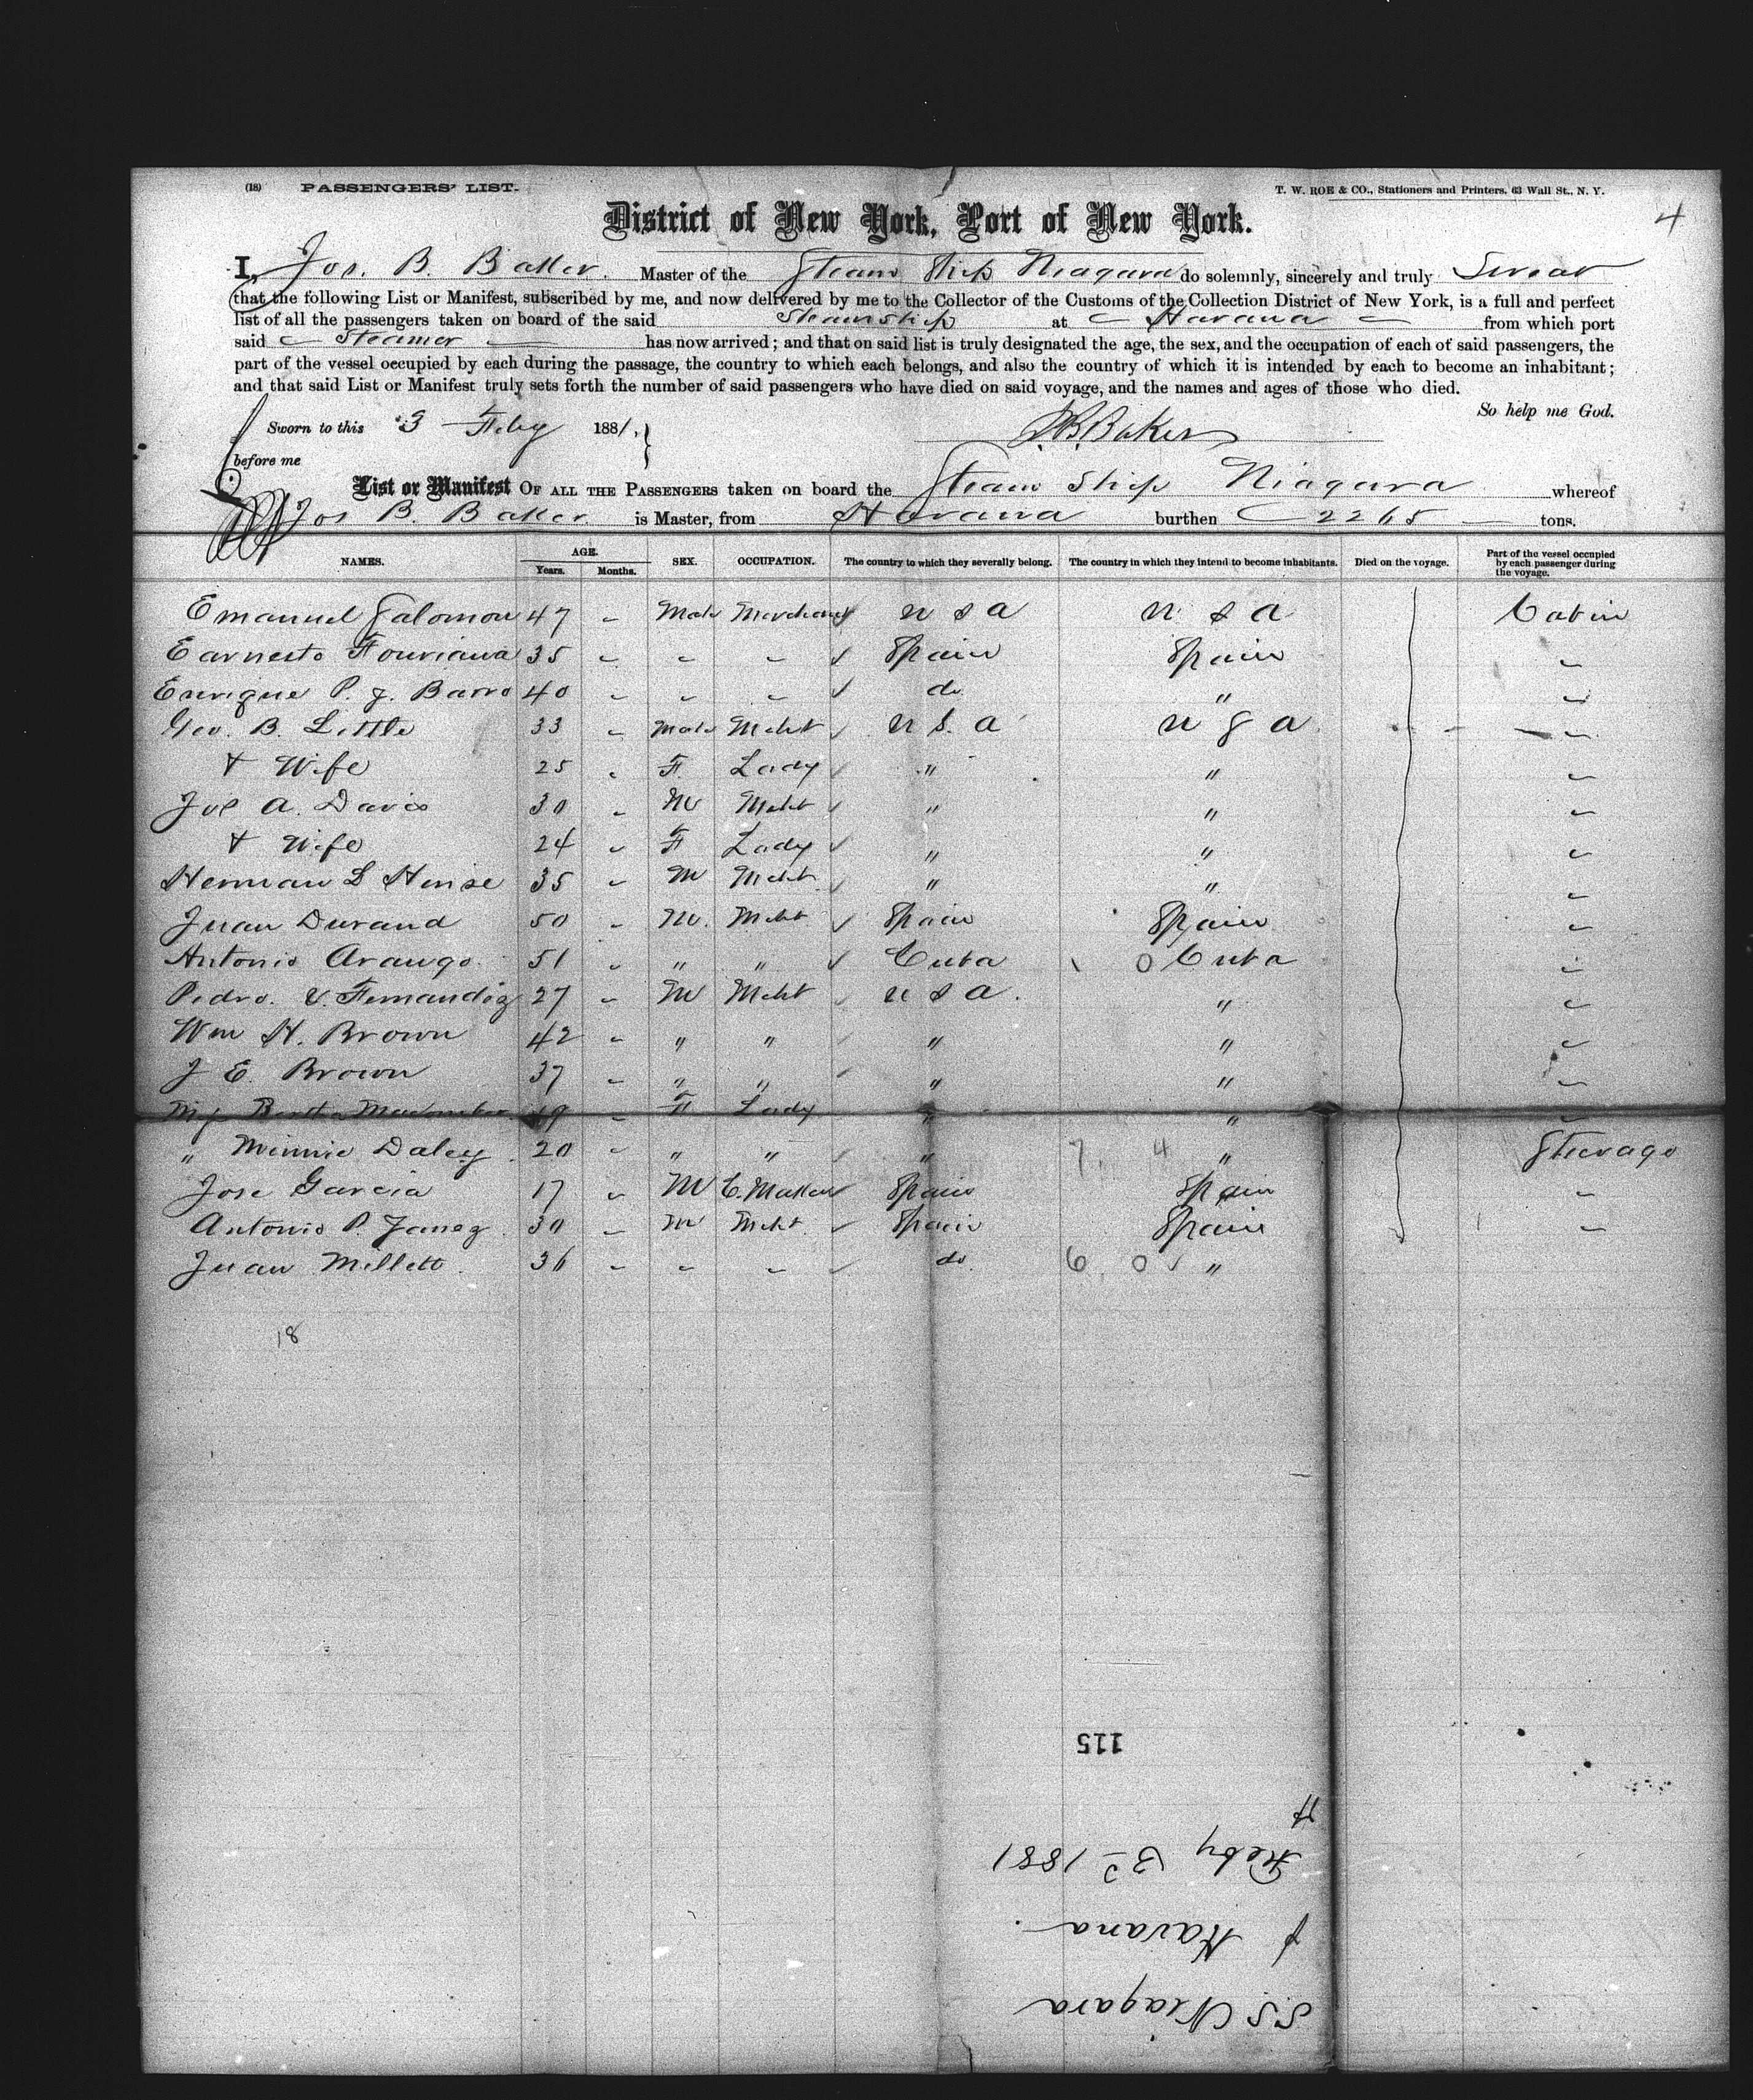 (18) PASSENGERS' LIST. T. W. ROE & CO., Stationers and Printers, 63 Wall St., N. Y.
4
District of New York, Port of New York.
I, Jos. B. Baker. Master of the Steam Ship Niagara do solemnly, sincerely and truly Swear
that the following List or Manifest, subscribed by me, and now delivered by me to the Collector of the Customs of the Collection District of New York, is a full and perfect
list of all the passengers taken on board of the said Steamship at Havana from which port
said Steamer has now arrived; and that on said list is truly designated the age, the sex, and the occupation of each of said passengers, the
part of the vessel occupied by each during the passage, the country to which each belongs, and also the country of which it is intended by each to become an inhabitant;
and that said List or Manifest truly sets forth the number of said passengers who have died on said voyage, and the names and ages of those who died.
So help me God.
Sworn to this 3 Feby 1881. J.B. Baker
before me
List or Manifest OF ALL THE PASSENGERS taken on board the Steam Ship Niagara whereof
Jos B. Baker is Master, from Havana burthen 2265 tons.
NAMES. AGE. Years. Months. SEX. OCCUPATION. The country to which they severally belong. The country in which they intend to become inhabitants. Died on the voyage. Part of the vessel occupied by each passenger during the voyage.
Emanuel Salomon 47 - Male Merchant U S A U. S A Cabin
Earnesto 35 - - - Spain Spain -
Enrique P. J. Barro 40 - - - do " -
Geo. B. Little 33 - Male Mcht U S. A U S A -
+ Wife 25 - F. Lady " " -
Jos A. Davis 30 - M Mcht " " -
+ Wife 24 - F Lady " " -
Herman L Hinse 35 - M Mcht " " -
Juan Durand 50 - M. Mcht Spain Spain -
Antonio Arango. 51 - " " Cuba 0 Cuba -
Pedro. V. Fernandez 27 - M Mcht U S A. " -
Wm H. Brown 42 - " " " " -
J E. Brown 37 - " " " " -
19 - F Lady " " -
" Minnie Daley 20 - " " " 7. 4 " Steerage
Jose Garcia 17 - M C. Maker Spain Spain -
Antonio P. Janez 30 - M Mcht. Spain Spain -
Juan Millett 36 - - - do 6. 0 "
18
115
Feby 3d 1881
f Havana.
S.S. Niagara